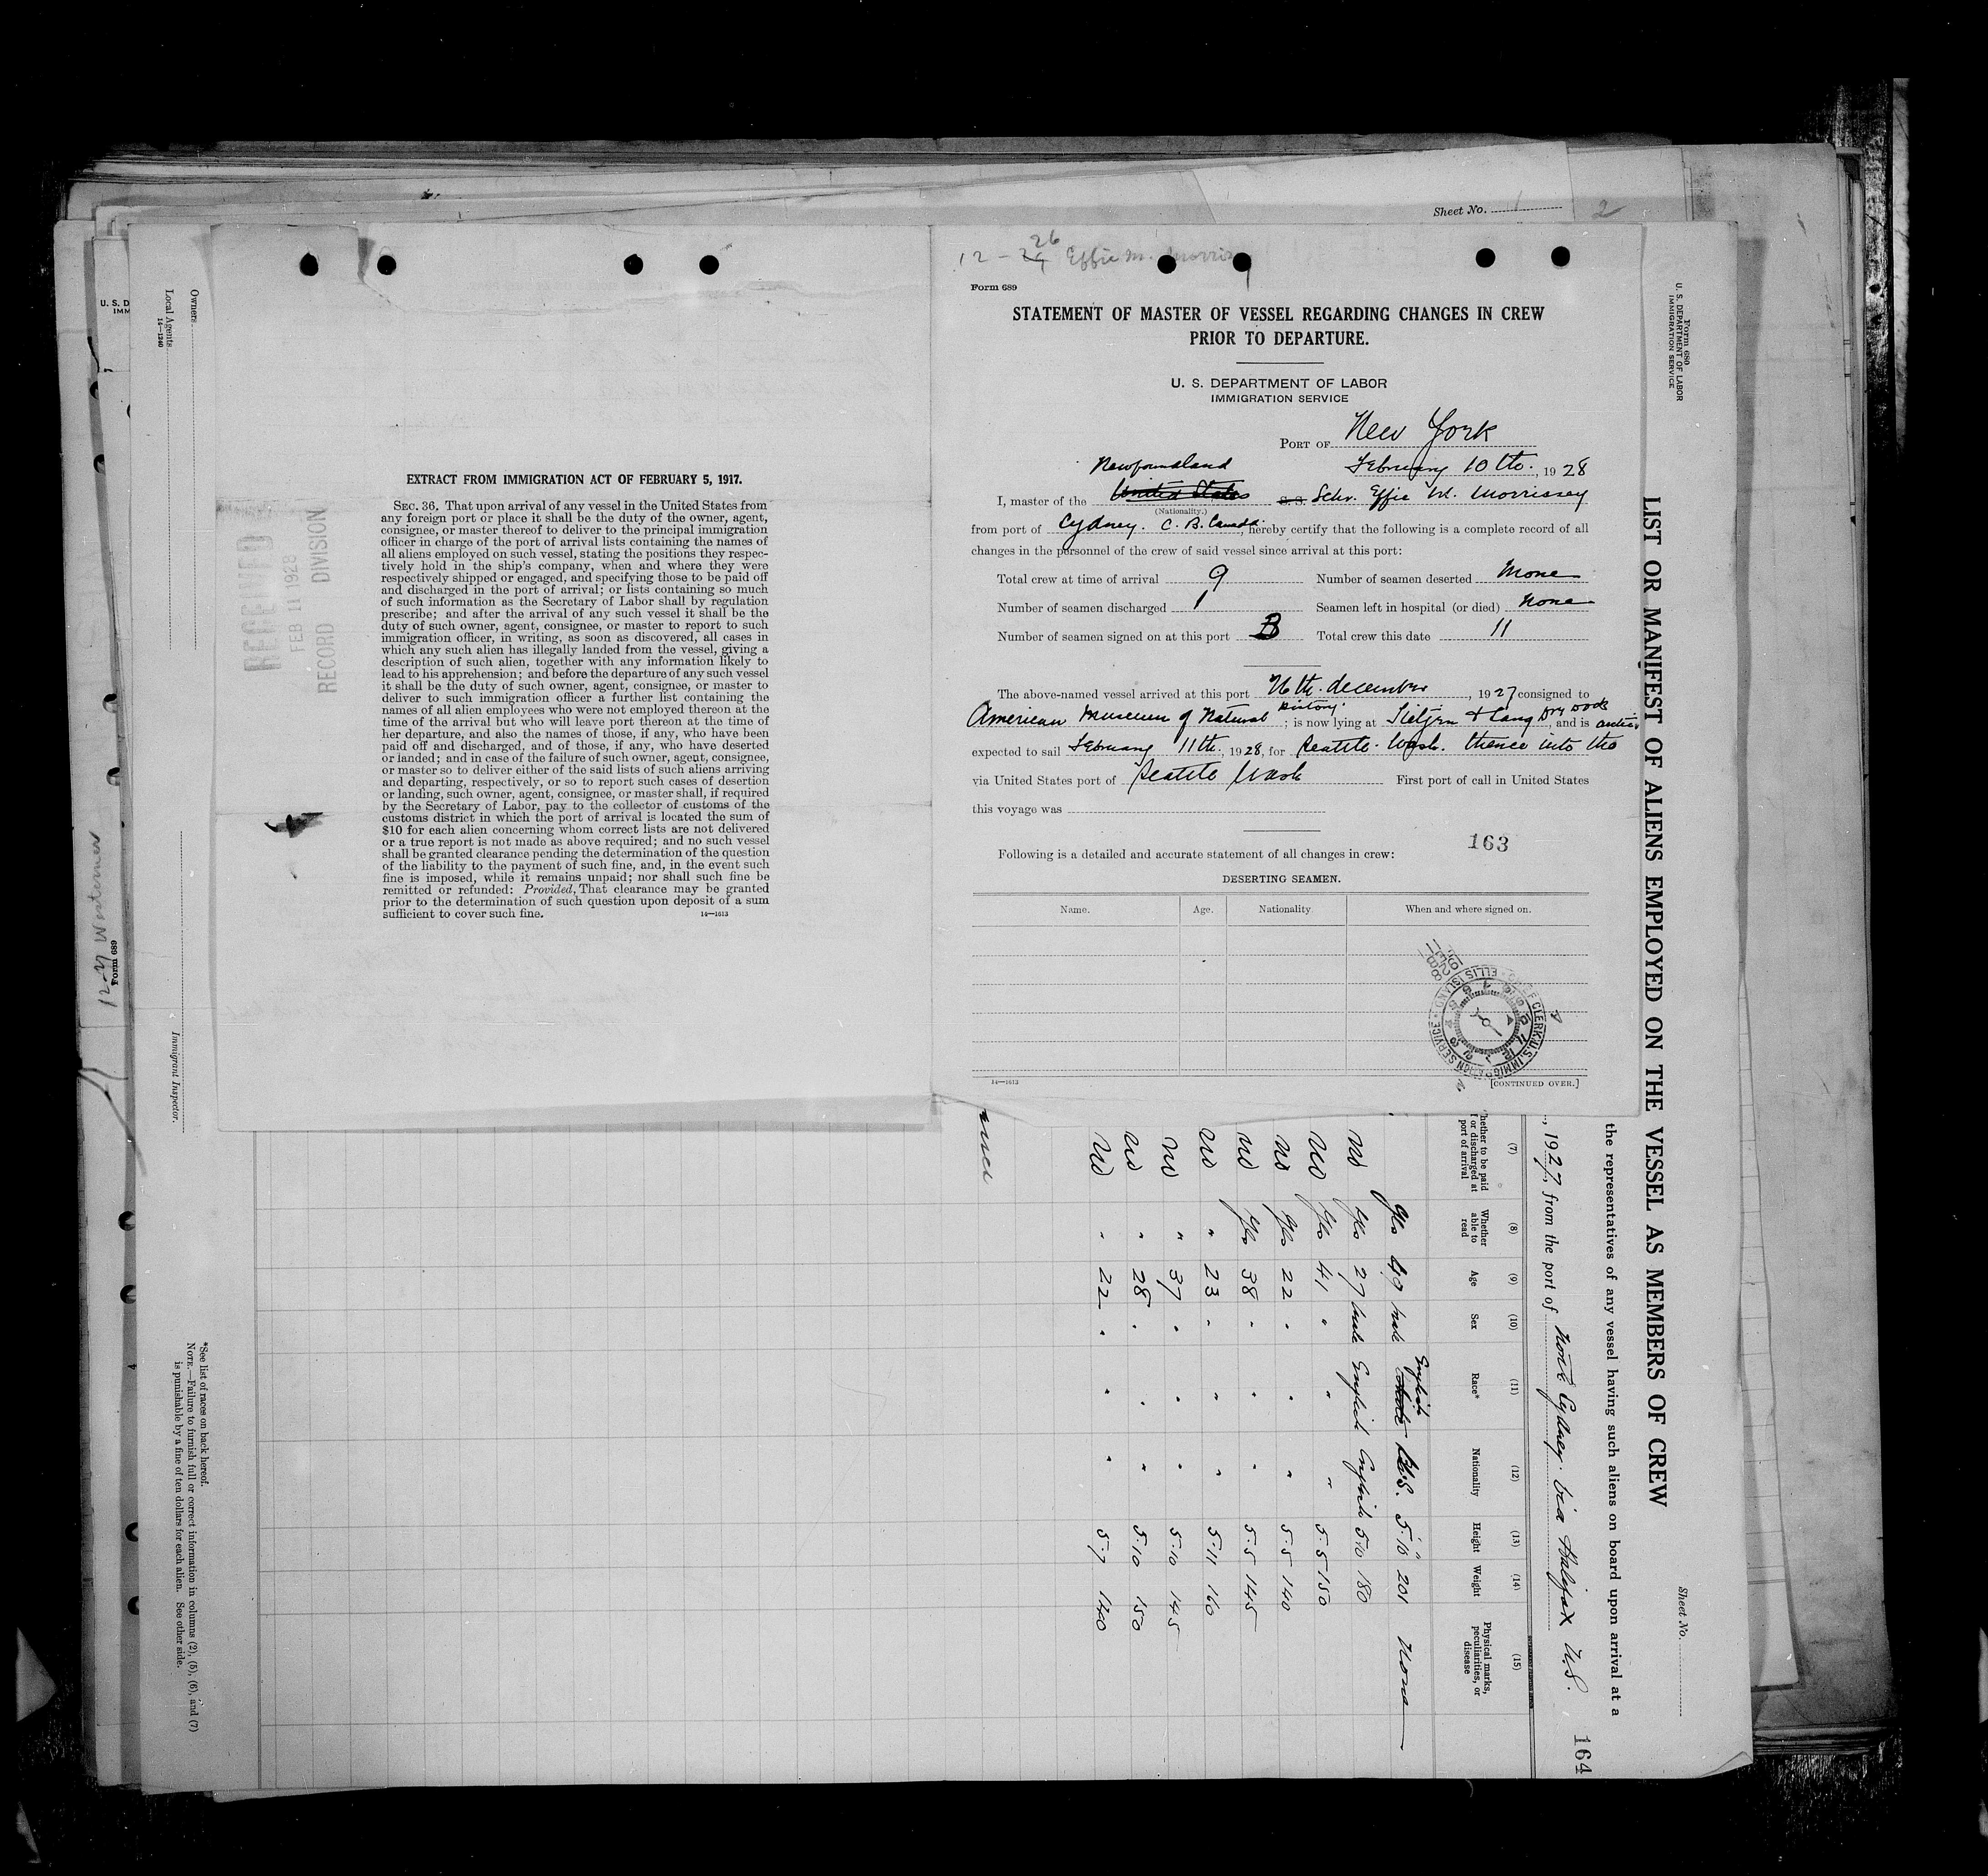 Sheet No. 1 2
Owners
Local Agents
14—1240
Immigrant Inspector.
12-27 Westerner
Form 689
EXTRACT FROM IMMIGRATION ACT OF FEBRUARY 5, 1917.
SEC. 36. That upon arrival of any vessel in the United States from
any foreign port or place it shall be the duty of the owner, agent,
consignee, or master thereof to deliver to the principal immigration
officer in charge of the port of arrival lists containing the names of
all aliens employed on such vessel, stating the positions they respec-
tively hold in the ship's company, when and where they were
respectively shipped or engaged, and specifying those to be paid off
and discharged in the port of arrival; or lists containing so much
of such information as the Secretary of Labor shall by regulation
prescribe; and after the arrival of any such vessel it shall be the
duty of such owner, agent, consignee, or master to report to such
immigration officer, in writing, as soon as discovered, all cases in
which any such alien has illegally landed from the vessel, giving a
description of such alien, together with any information likely to
lead to his apprehension; and before the departure of any such vessel
it shall be the duty of such owner, agent, consignee, or master to
deliver to such immigration officer a further list containing the
names of all alien employees who were not employed thereon at the
time of the arrival but who will leave port thereon at the time of
her departure, and also the names of those, if any, who have been
paid off and discharged, and of those, if any, who have deserted
or landed; and in case of the failure of such owner, agent, consignee,
or master so to deliver either of the said lists of such aliens arriving
and departing, respectively, or so to report such cases of desertion
or landing, such owner, agent, consignee, or master shall, if required
by the Secretary of Labor, pay to the collector of customs of the
customs district in which the port of arrival is located the sum of
$10 for each alien concerning whom correct lists are not delivered
or a true report is not made as above required; and no such vessel
shall be granted clearance pending the determination of the question
of the liability to the payment of such fine, and, in the event such
fine is imposed, while it remains unpaid; nor shall such fine be
remitted or refunded: Provided, That clearance may be granted
prior to the determination of such question upon deposit of a sum
sufficient to cover such fine.
14—1613
RECEIVED
FEB 11 1928
RECORD DIVISION
12 - 26 Effie M. Morris
Form 689
STATEMENT OF MASTER OF VESSEL REGARDING CHANGES IN CREW
PRIOR TO DEPARTURE.
U. S. DEPARTMENT OF LABOR
IMMIGRATION SERVICE
PORT OF New York
February 10th., 1928
Newfoundland
I, master of the United States S. S. Schr. Effie M. Morrissey
(Nationality.)
from port of Sydney. C. B. Canada., hereby certify that the following is a complete record of all
changes in the personnel of the crew of said vessel since arrival at this port:
Total crew at time of arrival 9 Number of seamen deserted None
Number of seamen discharged 1 Seamen left in hospital (or died) None
Number of seamen signed on at this port 3 Total crew this date 11
The above-named vessel arrived at this port 26th. december, 1927 consigned to
American Museum of Natural History; is now lying at Dry Dock, and is
expected to sail February 11th., 1928, for Seattle. Wash. thence into the
via United States port of Seattle Wash First port of call in United States
this voyage was
163
Following is a detailed and accurate statement of all changes in crew:
DESERTING SEAMEN.
Name. Age. Nationality. When and where signed on.
CLERK U.S. IMMIGRATION SERVICE ELLIS ISLAND
14—1613
[CONTINUED OVER.]
Form 680
U. S. DEPARTMENT OF LABOR
IMMIGRATION SERVICE
Sheet No.
LIST OR MANIFEST OF ALIENS EMPLOYED ON THE VESSEL AS MEMBERS OF CREW
the representatives of any vessel having such aliens on board upon arrival at a
, 1927, from the port of North Sydney. via Halifax N.S.
164
(7) (8) (9) (10) (11) (12) (13) (14) (15)
whether to be paid or discharged at port of arrival
Whether able to read
Age
Sex
Race*
Nationality
Height
Weight
Physical marks, peculiarities, or disease
Yes 49 male English U.S. 5.10 201 None
No Yes 27 Male English English 5.10 180
No Yes 41 " " " 5.5 150
No Yes 22 " " " 5.5 140
No Yes 38 " " " 5.5 145
No " 23 " " " 5.11 160
No " 37 " " " 5.10 145
No " 28 " " " 5.10 150
No " 22 " " " 5.7 140
*See list of races on back hereof.
NOTE.—Failure to furnish full or correct information in columns (2), (5), (6), and (7)
is punishable by a fine of ten dollars for each alien. See other side.